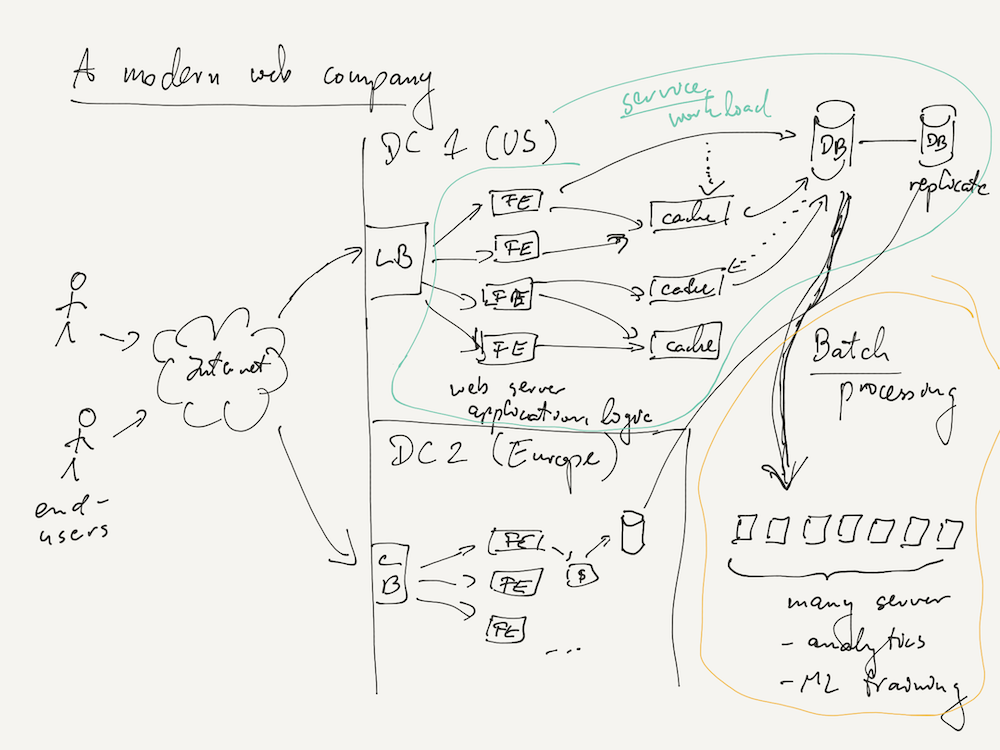 A modern web company
DC 1 (US)
service
workload
DB
DB
replicate
LB
FE
FE
FE
FE
cache
cache
cache
web server
application logic
Internet
end-
users
Batch
processing
DC 2 (Europe)
LB
FE
FE
FE
$
...
many server
- analytics
- ML training